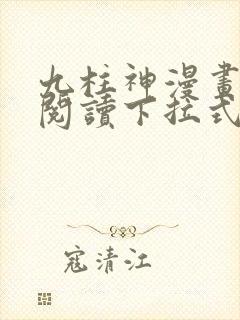 九柱神漫畫
閱讀下拉式
寇清江